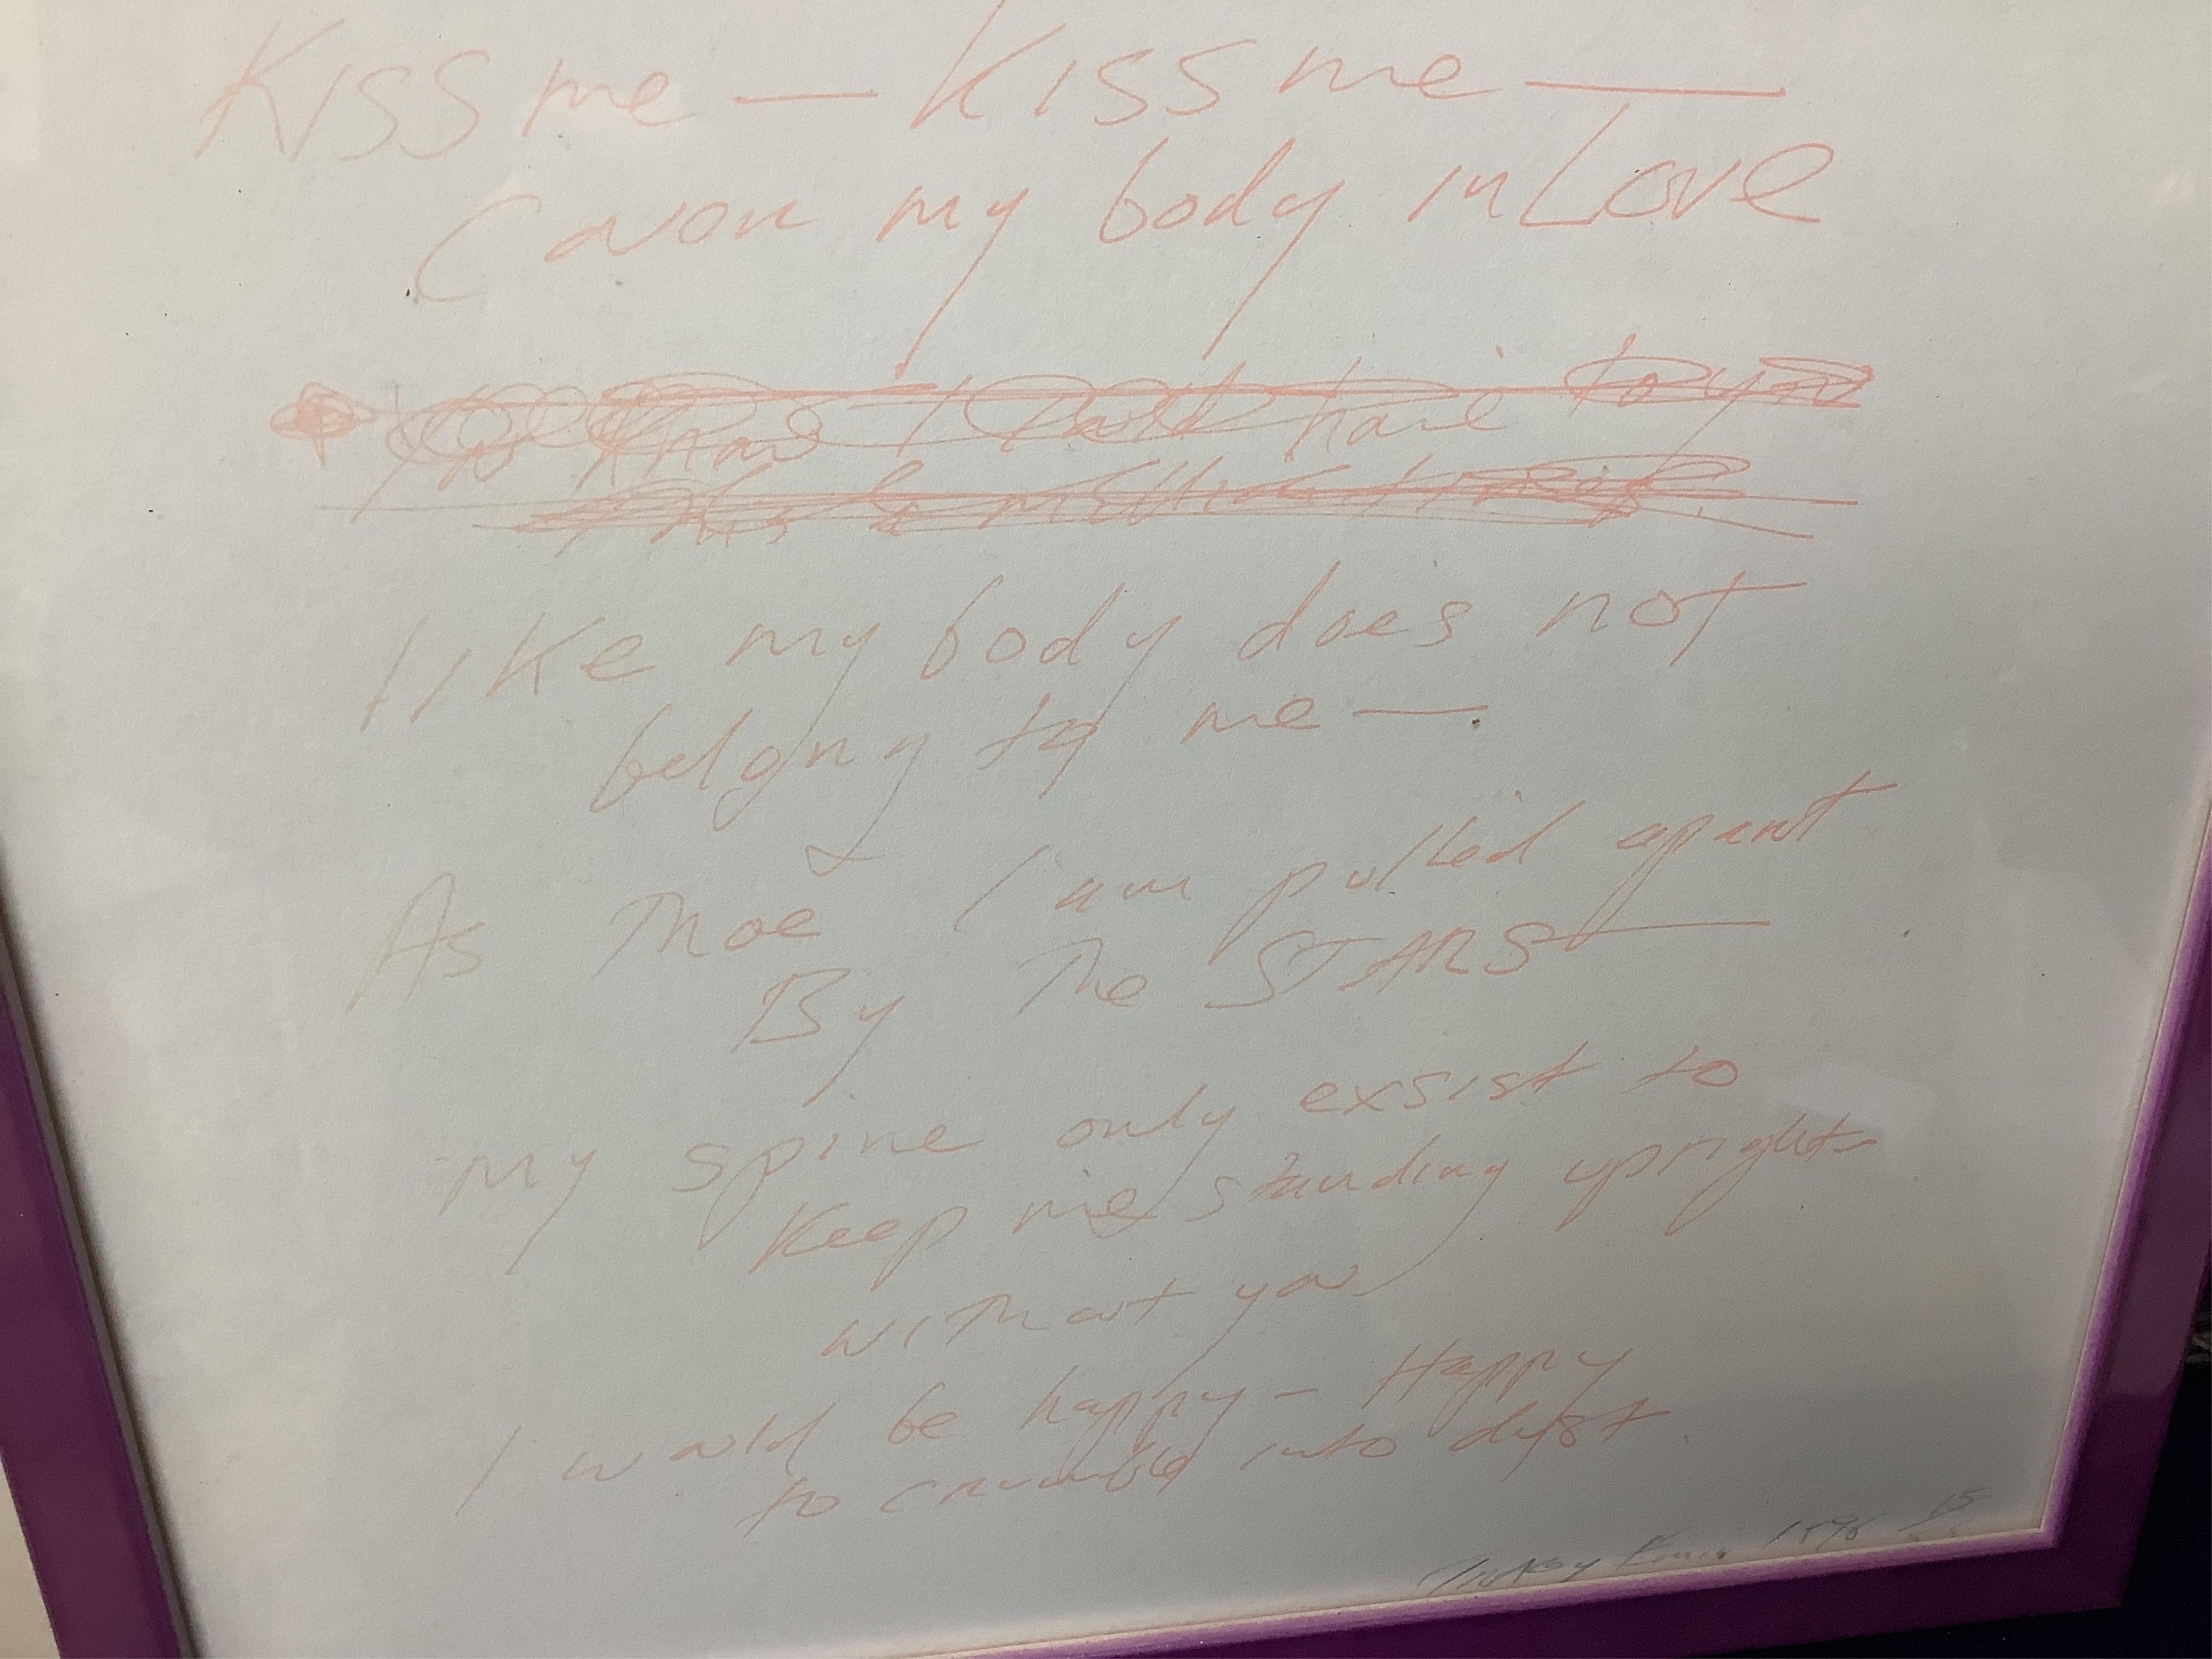 Kiss me — Kiss me —
Cover my body in Love
You know I
to you
this a million times
like my body does not
belong to me —
As Thoe I am pulled apart
By The STARS —
My spine only exsist to
Keep me standing upright
without you
I would be happy — Happy
to crumble into dust